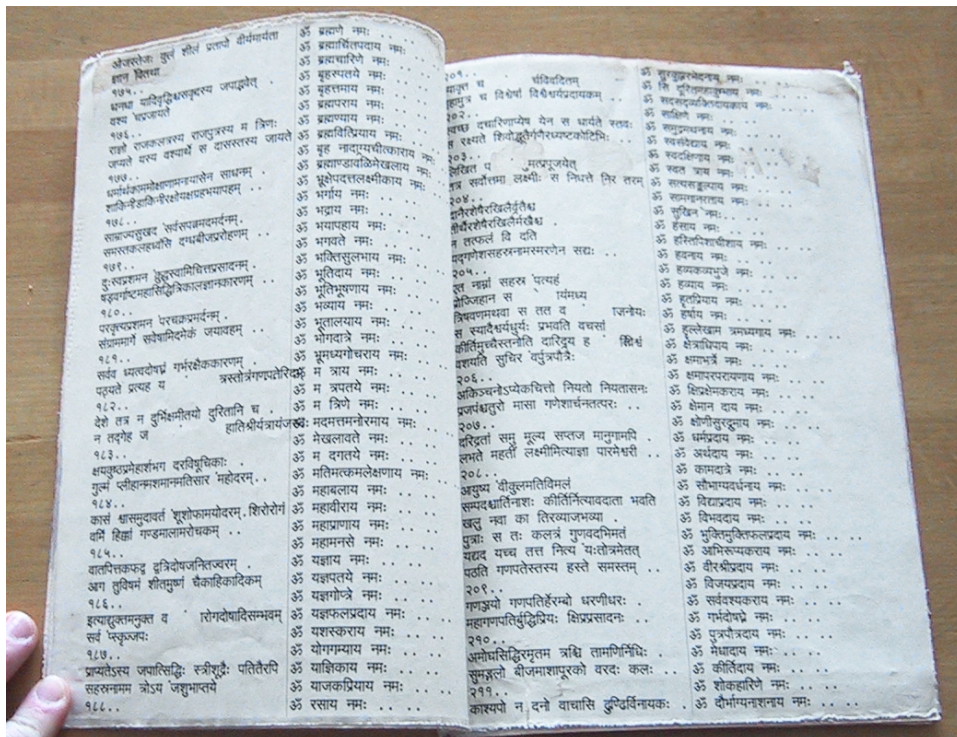 ओजस्तेजः कुलं शीलं प्रतापो वीर्यमार्यता
ज्ञान वितथा
१७५..
धनधा यादिवृद्धिश्चसकृदस्य जपाद्भवेत् .
वश्य चप्रजायते
१७६..
राज्ञो राजकलत्रस्य राजपुत्रस्य म त्रिणः
जप्यते यस्य वश्यार्थे स दासस्तस्य जायते
१७७..
धर्मार्थकाममोक्षाणामनायासेन साधनम् .
शाकिनीडाकिनीरक्षोयक्षग्रहभयापहम् ..
१७८..
साम्राज्यसुखद सर्वसपत्नमदमर्दनम् .
समस्तकलहध्वंसि दग्धबीजप्ररोहणम् ..
१७९..
दुःस्वप्नशमन क्रुद्धस्वामिचित्तप्रसादनम् .
षड्वर्गाष्टमहासिद्धित्रिकालज्ञानकारणम् ..
१८०..
परकृत्यप्रशमन परचक्रप्रमर्दनम् .
संग्राममार्गे सवेषामिदमेकं जयावहम् ..
१८१..
सर्वव ध्यत्वदोषघ्नं गर्भरक्षैककारणम् .
पठ्यते प्रत्यह य त्रस्तोत्रंगणपतेरिदम्
१८२..
देशे तत्र न दुर्भिक्षमीतयो दुरितानि च .
न तद्गेह ज हातिश्रीर्यत्रायंजस्तवः
१८३..
क्षयकुष्ठप्रमेहार्शभग दरविषूचिकाः .
गुल्मं प्लीहानमशमानमतिसार महोदरम्..
१८४..
कासं श्वासमुदावर्त शूशोफामयोदरम् .शिरोरोगं
वमिं हिक्कां गण्डमालामरोचकम् ..
१८५..
वातपित्तकफद्व द्वत्रिदोषजनितज्वरम्
आग तुविषमं शीतमुष्णं चैकाहिकादिकम्
१८६..
इत्याद्युक्तमनुक्त व रोगदोषादिसम्भवम्
सर्व
१८७..
प्राप्यतेऽस्य जपात्सिद्धिः स्त्रीशूद्रैः पतितैरपि
सहस्रनामम त्रोऽय जशुभाप्तये
१८८..
ॐ ब्रह्मणे नमः .. ..
ॐ ब्रह्मार्चितपदाय नमः
ॐ ब्रह्मचारिणे नमः ..
ॐ बृहस्पतये नमः ..
ॐ बृहत्तमाय नमः ..
ॐ ब्रह्मपराय नमः ..
ॐ ब्रह्मण्याय नमः ..
ॐ ब्रह्मवित्प्रियाय नमः ..
ॐ बृह नादाग्र्यचीत्काराय नमः
ॐ ब्रह्माण्डावळिमेखलाय नमः ..
ॐ भ्रूक्षेपदत्तलक्ष्मीकाय नमः
ॐ भर्गाय नमः .. ..
ॐ भद्राय नमः .. ..
ॐ भयापहाय नमः .. ..
ॐ भगवते नमः .. ..
ॐ भक्तिसुलभाय नमः ..
ॐ भूतिदाय नमः .. ..
ॐ भूतिभूषणाय नमः ..
ॐ भव्याय नमः .. ..
ॐ भूतालयाय नमः ..
ॐ भोगदात्रे नमः .. ..
ॐ भ्रूमध्यगोचराय नमः ..
ॐ म त्राय नमः .. ..
ॐ म त्रपतये नमः .. ..
ॐ म त्रिणे नमः .. ..
ॐ मदमत्तमनोरमाय नमः ..
ॐ मेखलावते नमः .. ..
ॐ म दगतये नमः .. ..
ॐ मतिमत्कमलेक्षणाय नमः ..
ॐ महाबलाय नमः .. ..
ॐ महावीराय नमः .. ..
ॐ महाप्राणाय नमः .. ..
ॐ महामनसे नमः .. ..
ॐ यज्ञाय नमः .. ..
ॐ यज्ञपतये नमः .. ..
ॐ यज्ञगोप्त्रे नमः .. ..
ॐ यज्ञफलप्रदाय नमः ..
ॐ यशस्कराय नमः .. ..
ॐ योगगम्याय नमः .. ..
ॐ याज्ञिकाय नमः .. ..
ॐ याजकप्रियाय नमः .. ..
ॐ रसाय नमः .. ..
२०१..
च र्थविवदितम्
च विश्वेर्षा विश्वैश्वर्यप्रदायकम् ..
२०२..
स्वच्छ दचारिणाप्येष येन स धार्यते स्तवः
स रक्ष्यते शिवोद्भूतैर्गणैरध्यष्टकोटिभिः
२०३..
लिखित प मुमत्प्रपूजयेत्
तत्र सर्वोत्तमा लक्ष्मीः स निधत्ते निर तरम्
२०४..
दानैरशेषैरखिलैर्वृतैश्च
तीर्थैरशेषैरखिलैर्मखैश्च
न तत्फलं वि दति
यद्गणेशसहस्रनामस्मरणेन सद्यः ..
२०५..
एत नाम्नां सहस्र पत्यहं
प्रोज्जिहान स यंमध्य
त्रिषवणमथवा स तत व जनोयः
स स्यादैश्वर्यधुर्यः प्रभवति वचसां
कीर्तिमुच्चैस्तनोति दारिद्र्य ह
वशयति सुचिर वर्पुत्रपौत्रैः
२०६..
अकिञ्चनोऽप्येकचित्तो नियतो नियतासनः
प्रजपंश्चतुरो मासा गणेशार्चनतत्परः ..
२०७..
दरिद्रतां समु मूल्य सप्तज मानुगामपि .
लभते महतीं लक्ष्मीमित्याज्ञा पारमेश्वरी ..
२०८..
आयुष्य वीकुलमतिविमलं
सम्पदश्चार्तिनाशः कीर्तिर्नित्यावदाता भवति
खलु नवा का तिरव्याजभव्या
पुत्राः स तः कलत्रं गुणवदभिमतं
यद्यद यच्च तत्त नित्य यःतोत्रमेतत्
पठति गणपतेस्तस्य हस्ते समस्तम् ..
२०९..
गणञ्जयो गणपतिर्हेरम्बो धरणीधरः .
महागणपतिर्बुद्धिप्रियः क्षिप्रप्रसादनः ..
२१०..
अमोघसिद्धिरमृतम त्रश्चि तामणिर्निधिः .
सुमङ्गलो बीजमाशापूरको वरदः कलः ..
२११..
काश्यपो न दनो वाचासि द्धुण्ढिर्विनायकः .
ॐ
ॐ
ॐ सदसद्व्यक्तिदायकाय नमः
ॐ साक्षिणे नमः .. ..
ॐ समुद्रमथनाय नमः ..
ॐ स्वसंवेद्याय नमः ..
ॐ स्वदक्षिणाय नमः ..
ॐ स्वत त्राय नमः ..
ॐ सत्यसङ्कल्पाय नमः ..
ॐ सामगानरताय नमः ..
ॐ सुखिन नमः .. ..
ॐ हंसाय नमः .. ..
ॐ हस्तिपिशाचीशाय नमः ..
ॐ हवनाय नमः .. ..
ॐ हव्यकव्यभुजे नमः ..
ॐ हव्याय नमः .. ..
ॐ हृतप्रियाय नमः .. ..
ॐ हर्षाय नमः .. ..
ॐ हृल्लेखाम त्रमध्यगाय नमः ..
ॐ क्षेत्राधिपाय नमः .. ..
ॐ क्षमाभर्त्रे नमः .. ..
ॐ क्षमापरपरायणाय नमः ..
ॐ क्षिप्रक्षेमकराय नमः ..
ॐ क्षेमान दाय नमः ..
ॐ क्षोणीसुरद्रुमाय नमः ..
ॐ धर्मप्रदाय नमः .. ..
ॐ अर्थदाय नमः .. ..
ॐ कामदात्रे नमः .. ..
ॐ सौभाग्यवर्धनाय नमः ..
ॐ विद्याप्रदाय नमः .. ..
ॐ विभवदाय नमः .. ..
ॐ भुक्तिमुक्तिफलप्रदाय नमः ..
ॐ आभिरूप्यकराय नमः ..
ॐ वीरश्रीप्रदाय नमः .. ..
ॐ विजयप्रदाय नमः .. ..
ॐ सर्ववश्यकराय नमः ..
ॐ गर्भदोषघ्ने नमः .. ..
ॐ पुत्रपौत्रदाय नमः .. ..
ॐ मेधादाय नमः .. ..
ॐ कीर्तिदाय नमः .. ..
ॐ शोकहारिणे नमः .. ..
ॐ दौर्भाग्यनाशनाय नमः .. ..